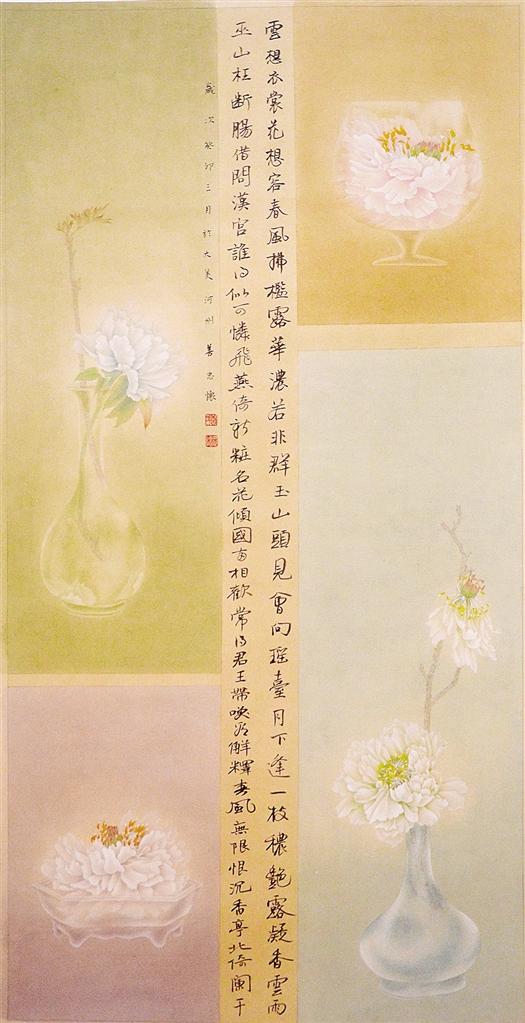 雲想衣裳花想容春風拂檻露華濃若非群玉山頭見會向瑤臺月下逢一枝穠艷露凝香雲雨
巫山枉断腸借問漢宮誰得似可憐飛燕倚新粧名花傾國両相歡常得君王帶笑看解釋春風無限恨沉香亭北倚闌干
歲次癸卯三月於大美河州